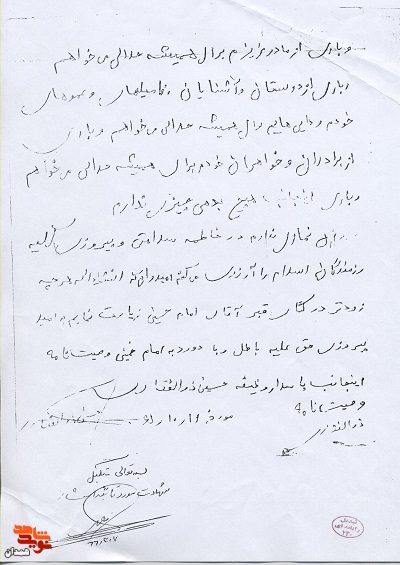 و باری از مادر عزیزم برای همیشه حلالی می خواهم
و باری از دوستان و آشنایان و فامیلهای و عموهای
خودم و دایی هایم برای همیشه حلالی می خواهم و باری
از برادران و خواهران خودم برای همیشه حلالی می خواهم
و باری هیچ بدهی چیزی ندارم
نمازی ندارم در خاتمه سلامتی و پیروزی کلیه
رزمندگان اسلام را آرزوی می کنم امیدوارم که انشاءالله هر چه
زودتر در کنار قبر آقای امام حسین زیارت نمایم به امید
پیروزی حق علیه باطل و با درود به امام خمینی وصیت نامه
اینجانب پاسدار وظیفه حسین ذوالفقاری
وصیت نامه
ذوالفقاری
مورخه
بسمه تعالی
شهادت مورد تائید است
شاهد
نوید
سمنان